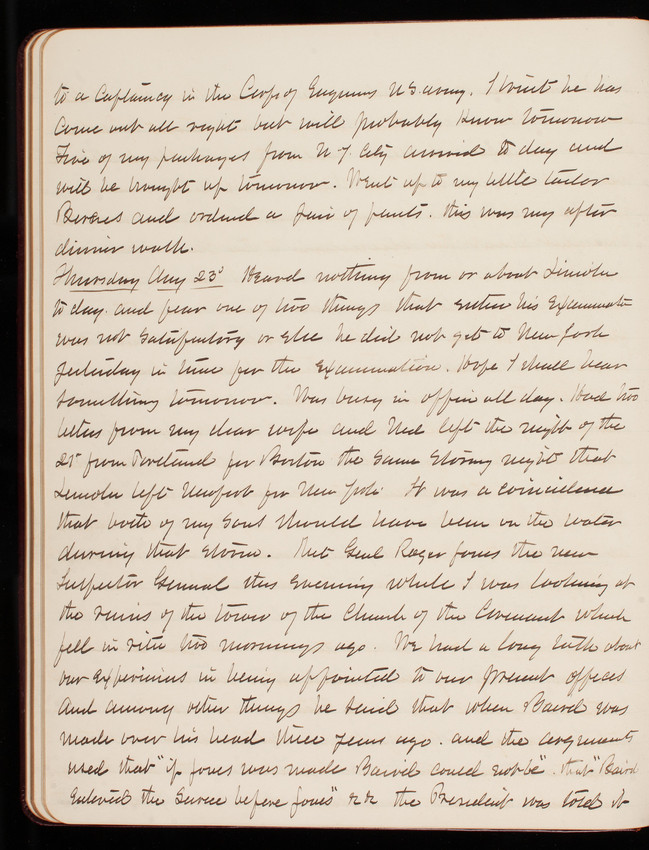 to a Captaincy in the Corps of Engineers US army. I trust he has
come out all right but will probably know tomorrow
Five of my packages from N Y City arrived to day and
will be brought up tomorrow. Went up to my little tailor
and ordered a pair of pants. this was my after
dinner walk.
Thursday Aug 23d Heard nothing from or about Lincoln
to day. and fear one of two things that either his Examination
was not satisfactory or else he did not get to New York
yesterday in time for the Examination. Hope I shall hear
something tomorrow. Was busy in office all day. Had two
letters from my dear wife and Ned left the night of the
21st from Portland for Boston the same stormy night that
Lincoln left Newport for New York It was a coincidence
that both of my sons should have been on the water
during that storm. Met Genl Roger Jones the new
Inspector General this Evening while I was looking at
the ruins of the tower of the Church of the Covenant which
fell in ruin two mornings ago. We had a long talk about
our Experiences in being appointed to our present offices
and among other things he said that when Baird was
made over his head three years ago. and the arguments
used that "if Jones was made Baird could not be". that "Baird
Entered the Service before Jones" &c &c the President was told it